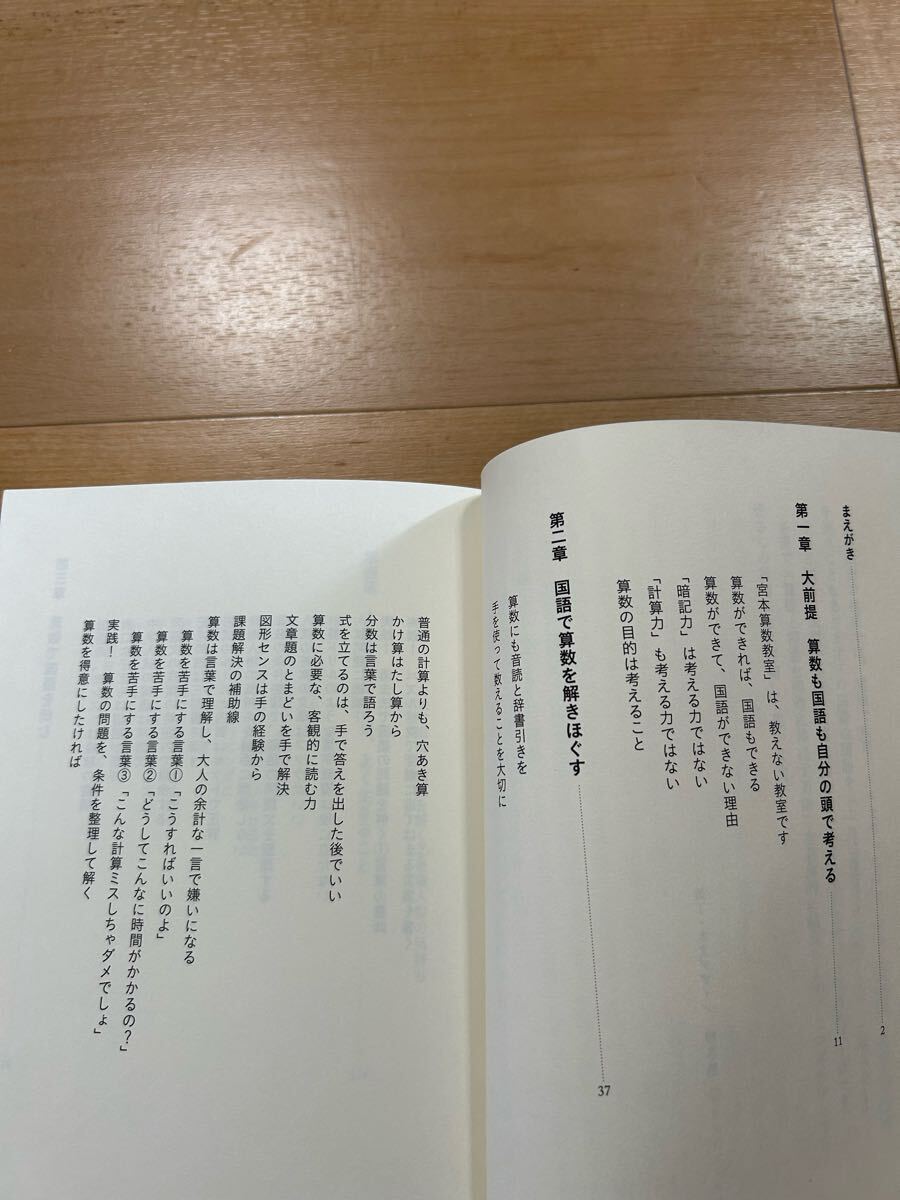 まえがき 2
第一章 大前提 算数も国語も自分の頭で考える 11
「宮本算数教室」は、教えない教室です
算数ができれば、国語もできる
算数ができて、国語ができない理由
「暗記力」は考える力ではない
「計算力」も考える力ではない
算数の目的は考えること
第二章 国語で算数を解きほぐす 37
算数にも音読と辞書引きを
手を使って数えることを大切に
普通の計算よりも、穴あき算
かけ算はたし算から
分数は言葉で語ろう
式を立てるのは、手で答えを出した後でいい
算数に必要な、客観的に読む力
文章題のとまどいを手で解決
図形センスは手の経験から
課題解決の補助線
算数は言葉で理解し、大人の余計な一言で嫌いになる
算数を苦手にする言葉①「こうすればいいのよ」
算数を苦手にする言葉②「どうしてこんなに時間がかかるの?」
算数を苦手にする言葉③「こんな計算ミスしちゃダメでしょ」
実践! 算数の問題を、条件を整理して解く
算数を得意にしたければ